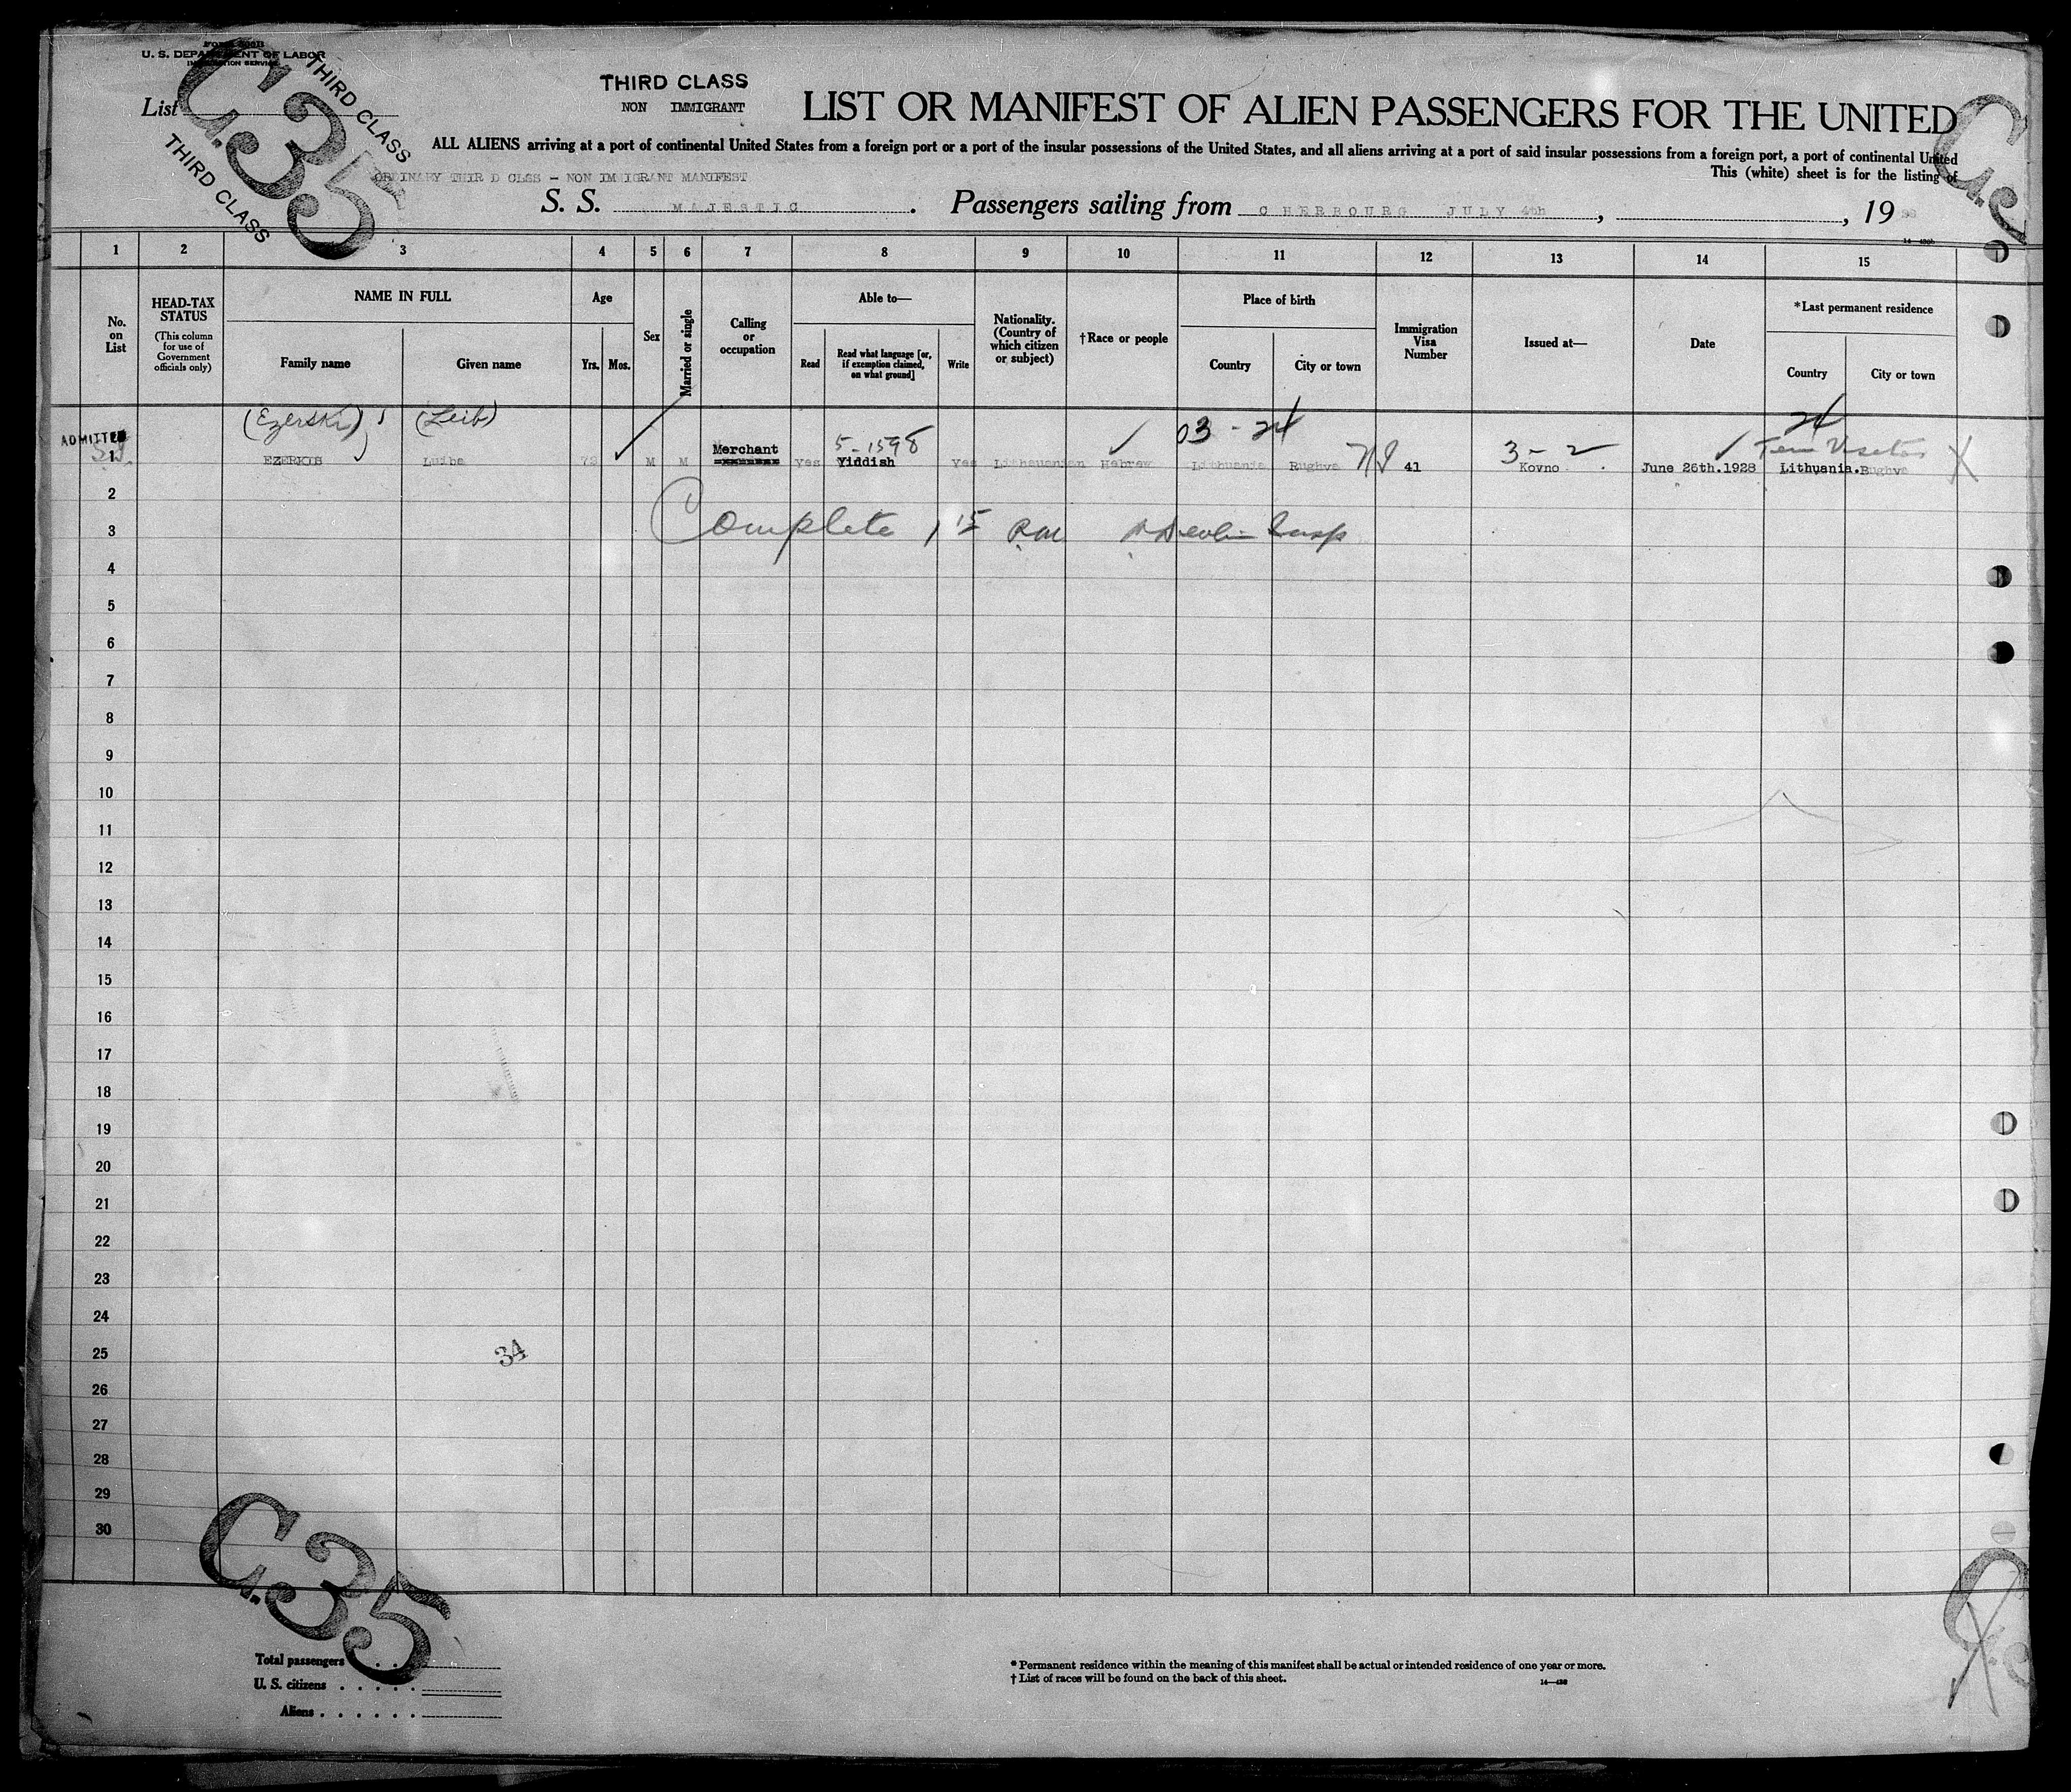 U. S. DEPARTMENT OF LABOR
List
C.35
THIRD CLASS
THIRD CLASS
THIRD CLASS
NON IMMIGRANT
LIST OR MANIFEST OF ALIEN PASSENGERS FOR THE UNITED
ALL ALIENS arriving at a port of continental United States from a foreign port or a port of the insular possessions of the United States, and all aliens arriving at a port of said insular possessions from a foreign port, a port of continental United
This (white) sheet is for the listing of
ORDINARY THIR D CLSS - NON IM IGRANT MANIFEST
S. S. MAJESTIC. Passengers sailing from CHERBOURG JULY 4th, , 19
1 2 3 4 5 6 7 8 9 10 11 12 13 14 15
No. on List
HEAD-TAX STATUS (This column for use of Government officials only)
NAME IN FULL
Family name Given name
Age
Yrs. Mos.
Sex
Married or single
Calling or occupation
Able to—
Read
Read what language [or, if exemption claimed, on what ground]
Write
Nationality. (Country of which citizen or subject)
†Race or people
Place of birth
Country City or town
Immigration Visa Number
Issued at—
Date
*Last permanent residence
Country City or town
(Ezerski) (Leib)
5-1598 03 - 24 3-2 24
ADMITTED
1 EZERKIS Luiba M M Merchant Yes Yiddish Yes Lithauanian Hebrew Lithuania Rughva 41 Kovno June 26th.1928 Lithuania. Rughva
2
Complete 1 15 P.M. Insp
3
4
5
6
7
8
9
10
11
12
13
14
15
16
17
18
19
20
21
22
23
24
25
34
26
27
28
29
30
C.35
Total passengers
U. S. citizens . . . . .
Aliens . . . . . .
* Permanent residence within the meaning of this manifest shall be actual or intended residence of one year or more.
† List of races will be found on the back of this sheet.